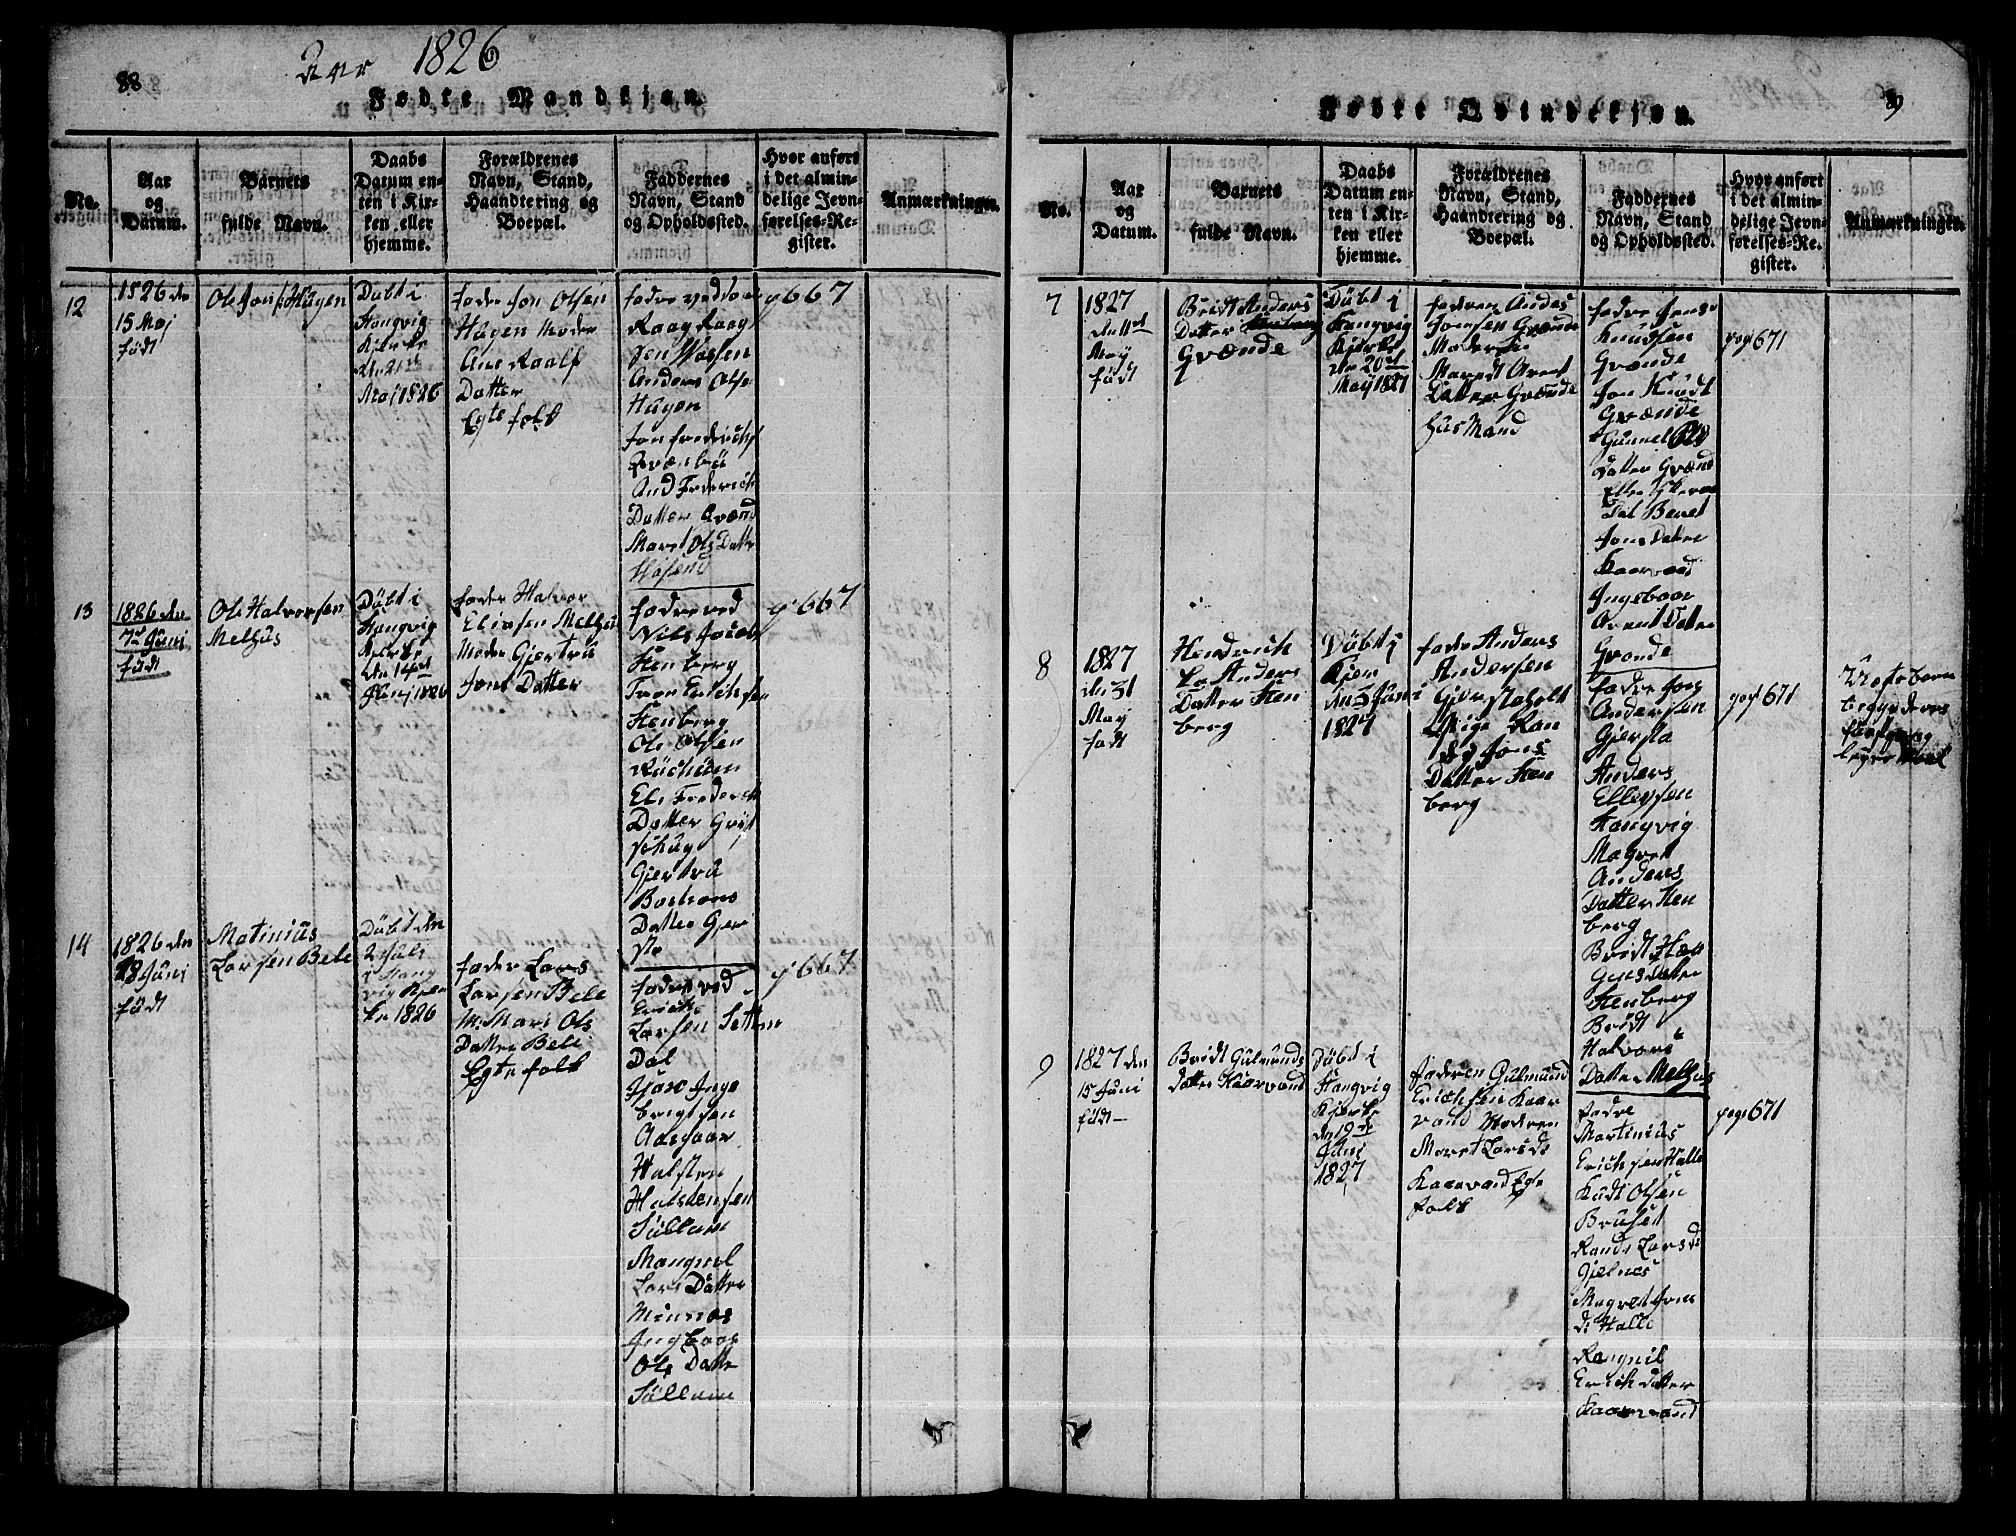 88
Aar 1826
Fødte Mandkjøn.
No.
Aar
og
Datum.
Barnets
fulde Navn.
Daabs
Datum en-
ten i Kir-
ken eller
hjemme.
Forældrenes
Navn, Stand,
Haandtering og
Boepæl.
Faddernes
Navn, Stand
og Opholdssted.
Hvor anført
i det almin-
delige Jevn-
førelses-Re-
gister.
Anmærkninger.
12
1826 den
15 Maj
født
Ole Jons: Hagen
Døbt i
Stangvig
Kjerke
den 21de
Maj 1826
fader Jon Olsen
Hagen Moder
Ane Roalfs
Datter
Egte folk
fadre ved
Roag Roag
sen
Anders Olse
Hagen
Jon frederichs
Qvænbü
And Frederichs
Datter Qvænd
Maret Ols Datte
p 667
13
1826 den
7de Juni
født
Ole Halvorsen
Melhus
Døbt i
Stangvig
Kjerke
den 14de
Junj 1826
fader Halvor
Elissen Melhus
Moder Gjertru
Jons Datter
fadre ved
Nils Jacobs
Stenberg
Tron Erichsen
Stenberg
Ole Olsen
Eli Frederich
Datter
Gjertru
Datter Gjer
ste
p 667
14
1826 den
28 Juni
født
Matinius
Larsen Bele
Døbt den
2 Juli
i Stang
vig Kjer
ke 1826
fader Lars
Larsen Bele
M: Mari Ols
Datter Bele
Egte folk
fadre ved
Erich
Larsen Settem
Dal
Inge
brigtsen
Aasgaar
Halsten
Halstensen
Søllum
Mangnil
Lars Datter
Ingebaar
Ols Datte
Søllum
p 667
89
Fødte Qvindekjøn.
No.
Aar
og
Datum.
Barnets
fulde Navn.
Daabs
Datum en-
ten i Kir-
ken eller
hjemme.
Forældrenes
Navn, Stand,
Haandtering og
Boepæl.
Faddernes
Navn, Stand
og Opholdssted.
Hvor anført
i det almin-
delige Jevn-
førelses-Re-
gister.
Anmærkninger.
7
1827
May
født
Bridt Anders
Datter
Gvænde
Døbt i
Stangvig
Kjerke
den 20de
May 1827
fadren Andes
Jonsen Gvænde
Moderen
Maredt Arent
Datter Gvænde
Hus Mand
fadre Jens
Knudsen
Gvænde
Jon Knudt
Gvænde
Gunnel Ols
Datter Gvænd
Dal Beret
Jons Datter
Kaarvand
Ingebaar
Arent Datter
Gvænde
page 671
8
1827
May
født
Hendrich
Anders
Datter Sten
berg
Døbt i
Kjer
den 3 Juni
1827
fader Anders
Andersen
Gjersteholt
Pige Ran
di Jons
Datter Sten
berg
fadre Jons
Andersen
Gjerste
Anders
Ellevsen
Stangvig
Magret
Anders
Datter Sten
berg
Bridt
Datter
Stenberg
Bridt
Halvors
Datter Melhus
page 671
Uegte barn
begge deres
første
9
1827 den
15 Juni
født
Bridt Gulmunds
datter Kaarvand
Døbt i
Stangvig
Kjerke
den 19de
Juni
1827
fadren Gulmund
Erichsen Kaar
vand Modren
Maret Larsd:
Kaarvand Egte
folk
fadre
Martinius
Erichsen Halle
Knudt Olsen
Bruset
Rande Larsd:
Gjelnes
Magret Jons
d: Halle
Rangnil
Erich datter
Kaarvand
page 671